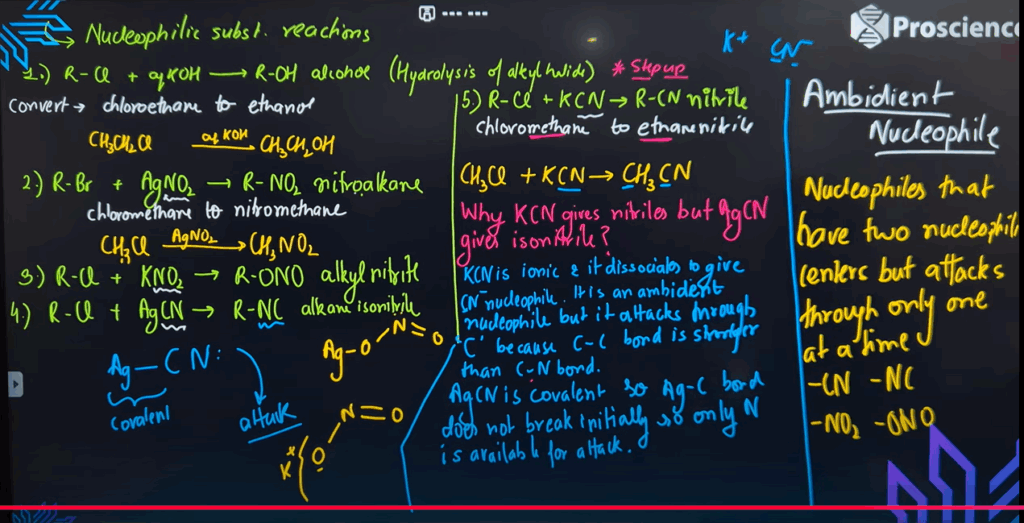 Nucleophilic subst. reactions
1.) R-Cl + aq KOH → R-OH alcohol (Hydrolysis of alkyl halide) * Step up
convert → chloroethane to ethanol
CH3CH2Cl aq KOH → CH3CH2OH
2.) R-Br + AgNO2 → R-NO2 nitroalkane
chloromethane to nitromethane
CH3Cl AgNO2 → CH3NO2
3.) R-Cl + KNO2 → R-ONO alkyl nitrite
4.) R-Cl + AgCN → R-NC alkane isonitrile
Ag-CN:
covalent
attack
Ag-O-N=O
N=O
K O
K+ CN-
5.) R-Cl + KCN → R-CN nitrile
chloromethane to ethanenitrile
CH3Cl + KCN → CH3CN
Why KCN gives nitriles but AgCN
gives isonitrile?
KCN is ionic & it dissociates to give
CN- nucleophile. It is an ambident
nucleophile but it attacks through
'C' because C-C bond is stronger
than C-N bond.
AgCN is covalent so Ag-C bond
does not break initially so only N
is available for attack.
Proscience
Ambidient
Nucleophile
Nucleophiles that
have two nucleophil
centers but attacks
through only one
at a time
-CN -NC
-NO2 -ONO